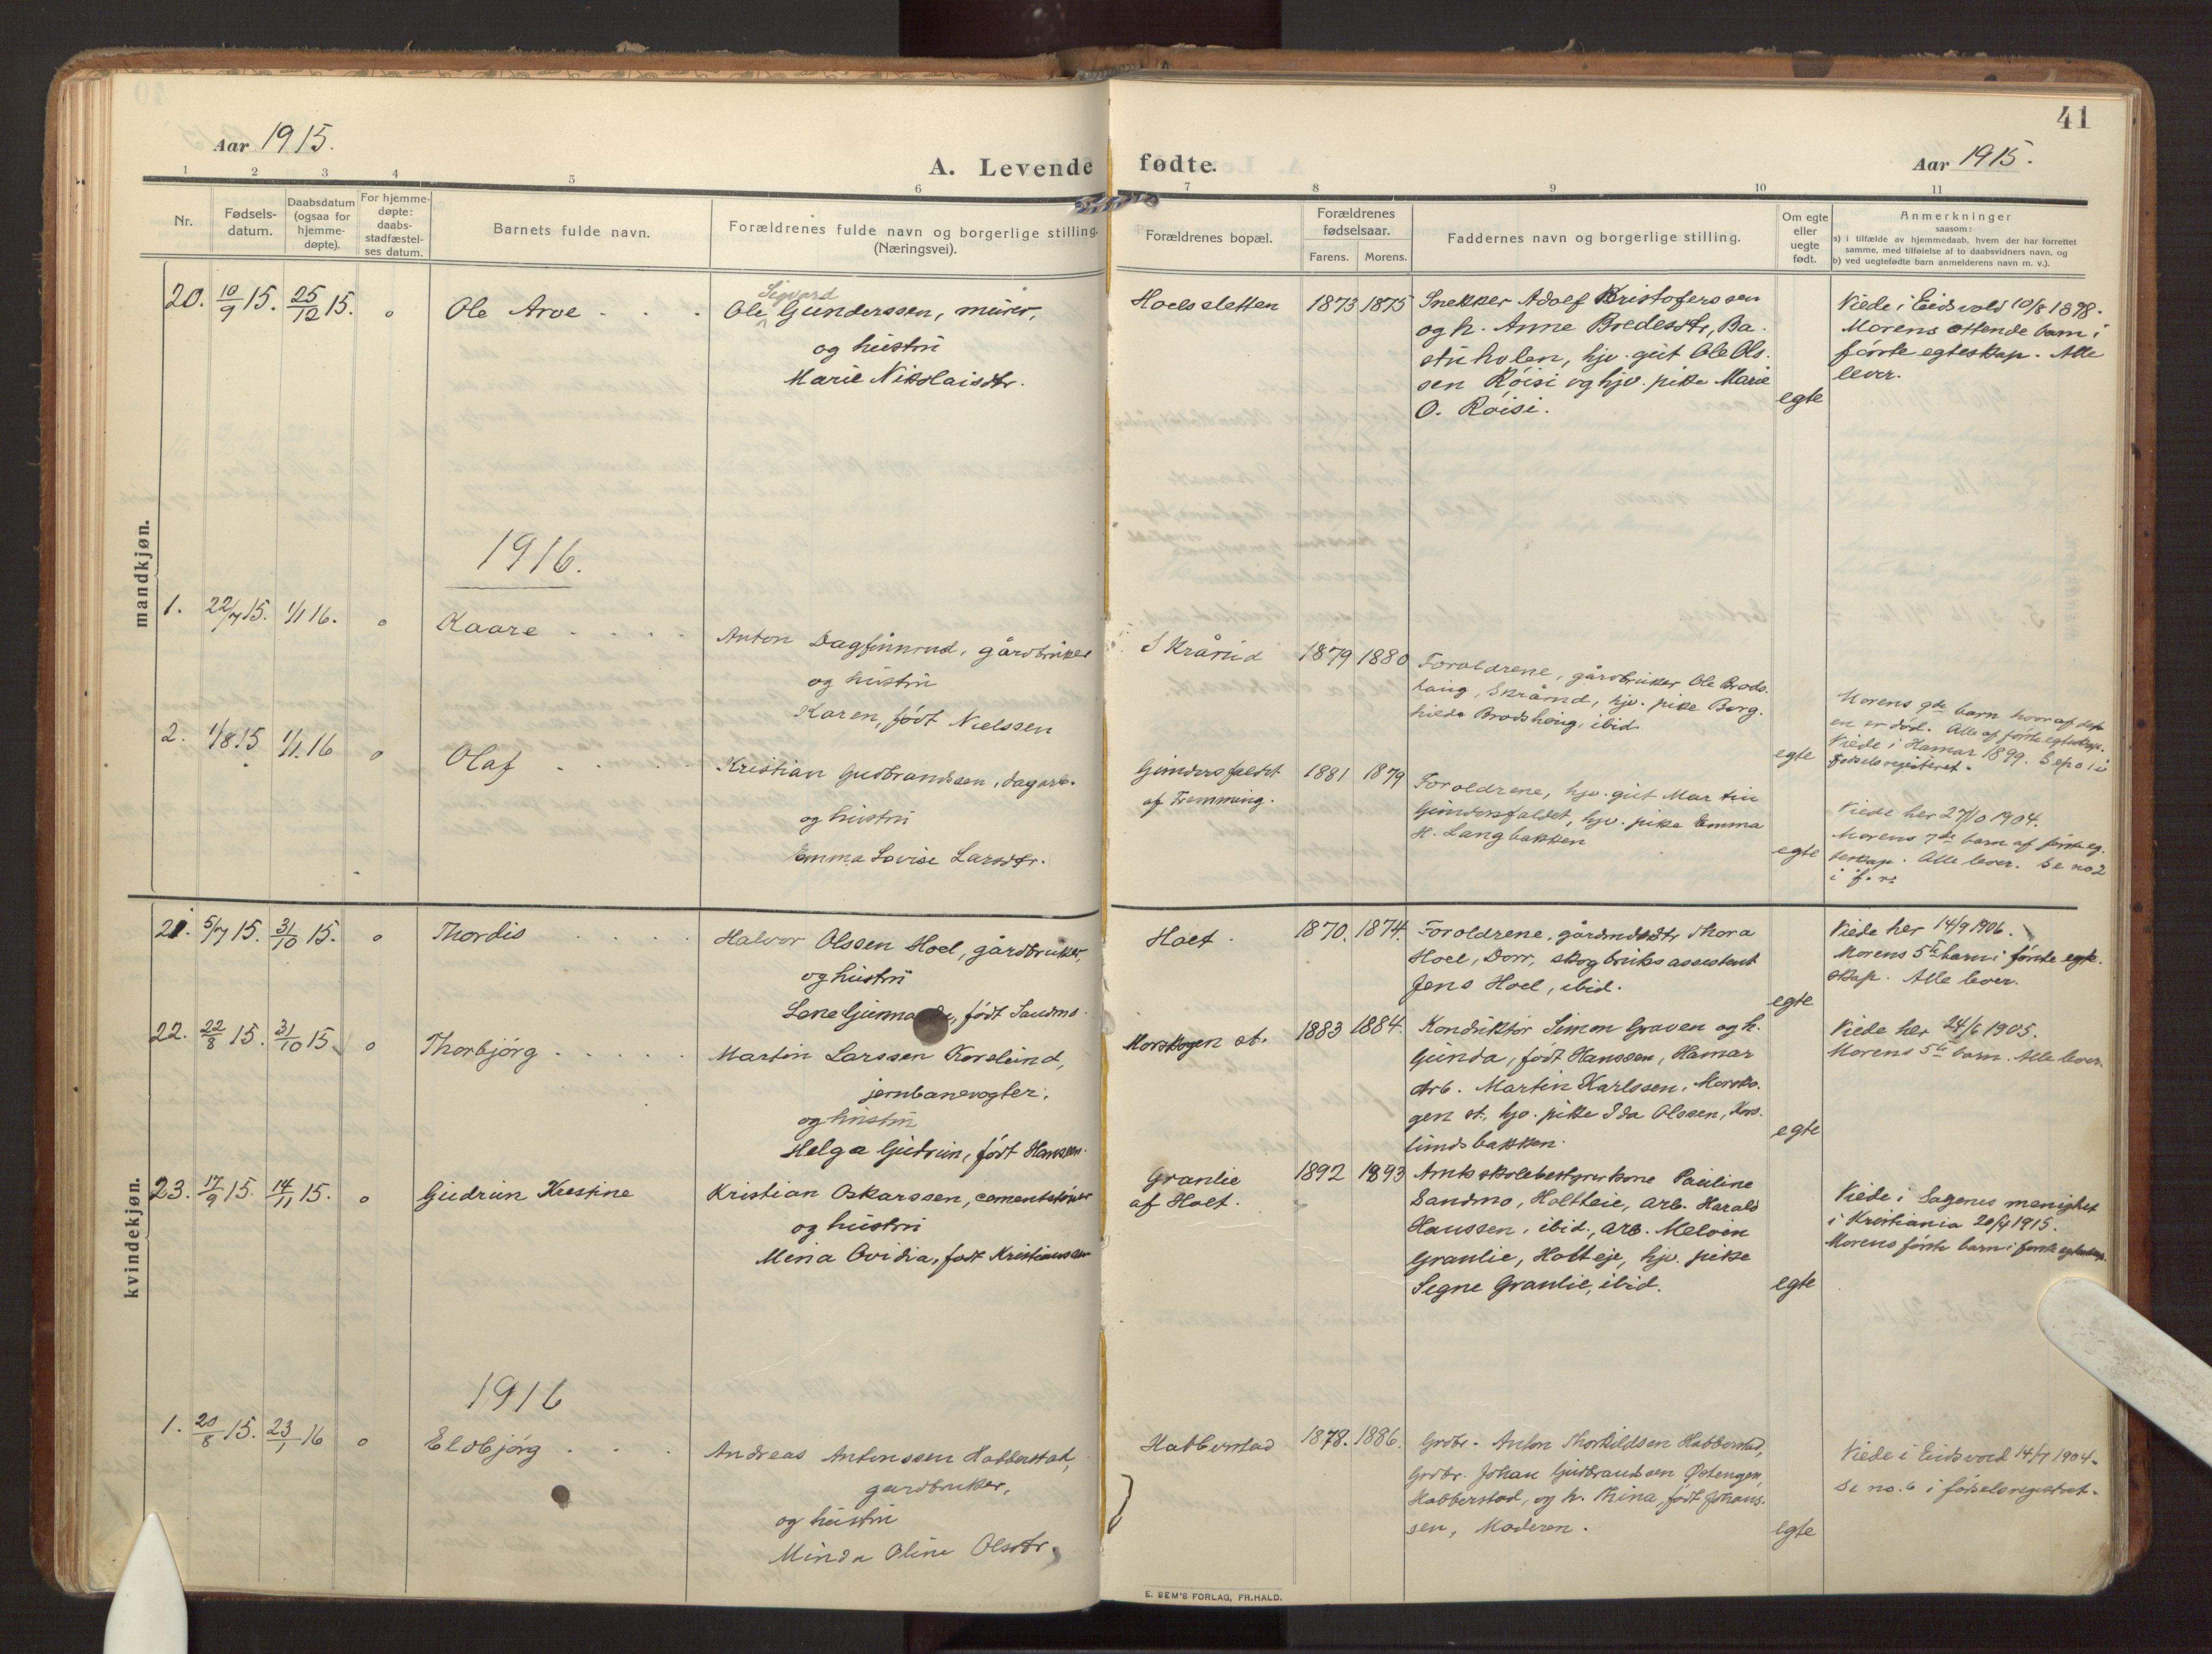 41
Aar 1915.
A. Levende fødte.
Aar 1915.
1 2 3 4 5 6 7 8 9 10 11
Nr.
Fødsels-
datum.
Daabsdatum
(ogsaa for
hjemme-
døpte).
For hjemme-
døpte:
daabs-
stadfæstel-
ses datum.
Barnets fulde navn.
Forældrenes fulde navn og borgerlige stilling.
(Næringsvei).
Forældrenes bopæl.
Forældrenes
fødselsaar.
Farens. Morens.
Faddernes navn og borgerlige stilling.
Om egte
eller
uegte
født.
Anmerkninger
saasom:
a) i tilfælde av hjemmedaab, hvem der har forrettet
samme, med tilføielse af to daabsvidners navn, og
b) ved uegtefødte barn anmelderens navn m. v.).
mandkjøn.
20. 10/9 15. 25/12 15. o
Ole Arve . . .
Sigvard
Ole Gunderssen, murer,
og hustru
Marie Nikolaisdtr.
Hoelssletten
1873 1875
Snekker Adolf Kristoferssen
og h. Anne Bredesdtr, Ba-
stuholen, hjv. gut Ole Ols-
sen Röisi og hjv. pike Marie
O. Röisi.
egte
Viede i Eidsvold 10/8 1898.
Morens ottende barn i
første egteskap. Alle
lever.
1916.
1. 22/7 15. 1/1 16. o
Kaare . . . .
Anton Dagfinnrud, gårdbruker
og hustru
Karen, født Nielssen
Skårud
1879 1880
Foreldrene, gårdbruker Ole Brods-
haug, Skårud, hjv. pike Borg-
hilda Brodshaug, ibid.
egte
Morens 9de barn hvoraf
en er død. Alle af første egteskap.
Viede i Hamar 1899. Se no 1 i
fødselsregisteret.
2. 1/8 15 1/1 16 o
Olaf . . . .
Kristian Gudbrandsen, dagarb.
og hustru
Emma Lovise Larsdtr.
Gundersfaldet
af Fremming.
1881 1879
Foreldrene, hjv. gut Martin
Gundersfaldet, hjv. pike Emma
H. Langbakken
egte
Viede her 27/10 1904.
Morens 7de barn af første eg-
teskap. Alle lever. Se no 2
i f. r.
kvindekjøn.
21. 5/7 15. 31/10 15. o
Thordis . . . .
Halvor Olssen Hoel, gårdbruker,
og hustru
Lene født Sandmo.
Hoel.
1870. 1874.
Foreldrene, gårdmdsdtr Thora
Hoel, Dorr, skogbruksassistent
Jens Hoel, ibid.
egte
Viede her 14/9 1906.
Morens 5te barn i første egte-
skap. Alle lever.
22. 22/8 15. 31/10 15. o
Thorbjörg . . . . .
Martin Larssen Korslund,
jernbanevogter,
og hustru
Helga Gudrun, født Hanssen.
Morskogen st.
1883 1884.
Konduktör Simon Graven og h.
Gunda, født Hanssen, Hamar
Arb. Martin Karlssen, Morsko-
gen st, hjv. pike Ida Olssen, Kors-
lundsbakken.
egte
Viede her 24/6 1905.
Morens 5te barn. Alle lever.
23. 17/9 15. 14/11 15. o
Gudrun Kristine
Kristian Oskarssen, cementstøper
og hustru
Mina Ovidia, født Kristianssen
Granlie
af Holt.
1892 1893
Amtsskolebestyrerkone Pauline
Sandmo, Holtleie, arb. Harald
Hanssen, ibid., arb. Melvin
Granlie, Holteje, hjv. pike
Segne Granlie, ibid.
egte
Viede i Sagenes menighet
i Kristiania 20/4 1915.
Morens første barn i første egteskap.
1916
1. 20/8 15. 23/1 16 o
Eldbjörg . . .
Andreas Antonssen Habberstad,
gardbruker,
og hustru
Minda Oline Olsdtr.
Habberstad
1878. 1886.
Grdbr. Anton Thorkildsen Habberstad,
Grdbr. Johan Gudbrandsen Østengen,
Habberstad, og h. Mina, født Johans-
sen, Moderen.
egte
Viede i Eidsvold 14/7 1904.
Se no. 6 i fødselsregistret.
E. SEM'S FORLAG, FR.HALD.